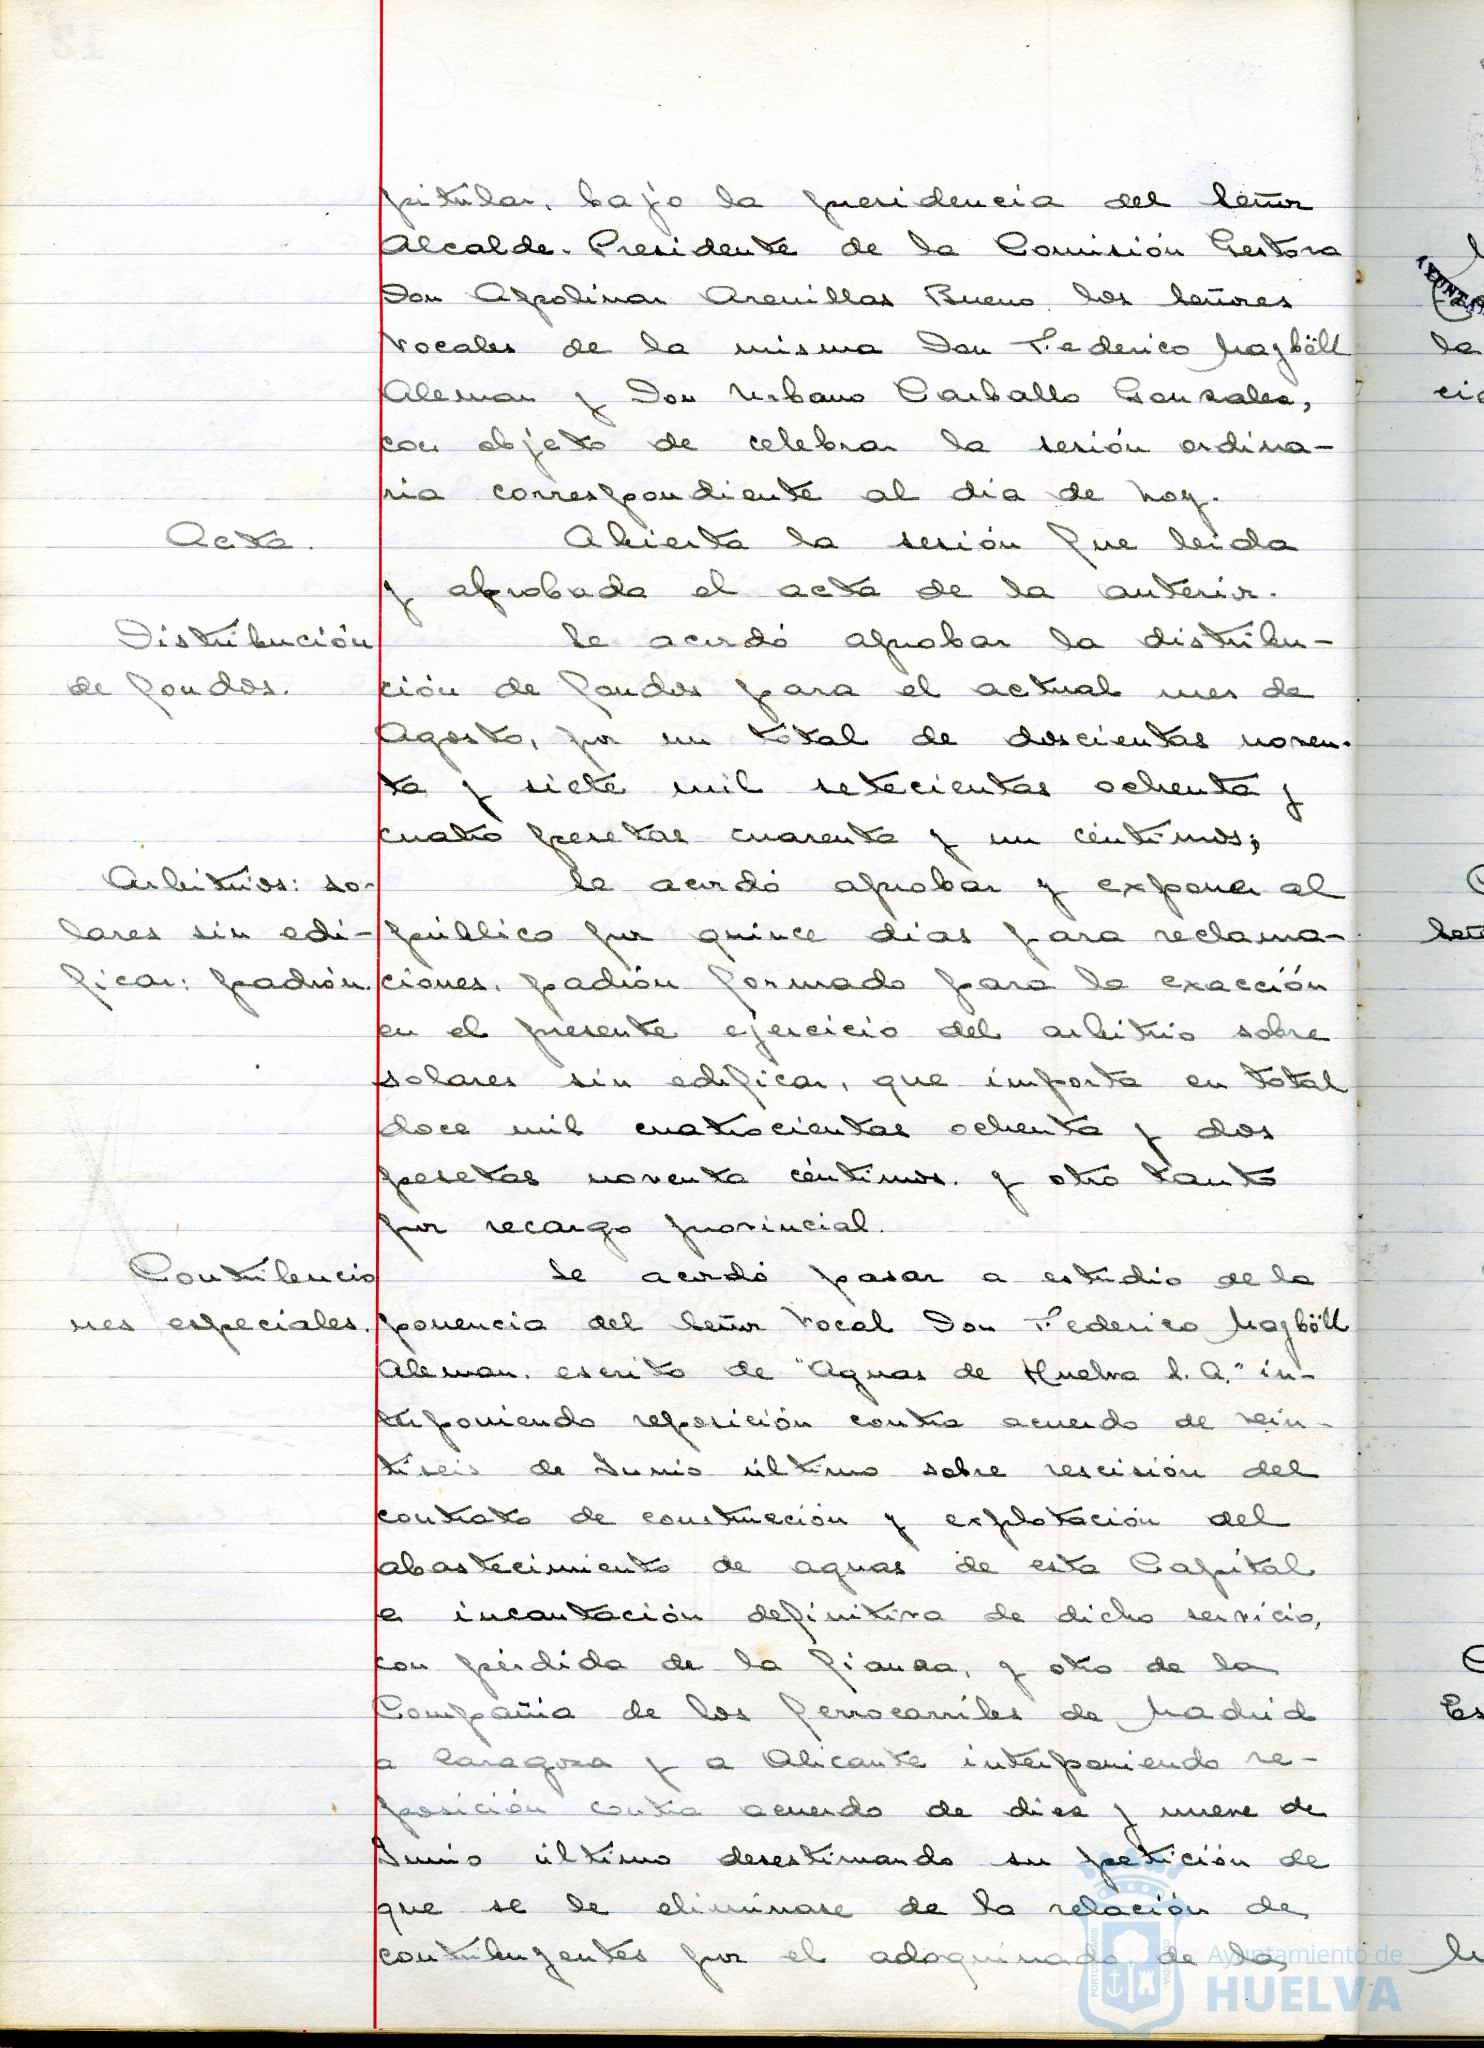 pitular, bajo la presidencia del Señor
Alcalde-Presidente de la Comisión Gestora
Don Apolinar Arenillas Bueno, los Señores
Vocales de la misma Don Federico Maybëll
Aleman y Don Urbano Carballo Gonzalez,
con objeto de celebrar la sesión ordina-
ria correspondiente al día de hoy.
Acta.
Abierta la sesión fue leida
y aprobada el acta de la anterior.
Distribución
de fondos.
Se acordó aprobar la distribu-
ción de fondos para el actual mes de
Agosto, por un total de doscientas noven-
ta y siete mil setecientas ochenta y
cuatro pesetas cuarenta y un céntimos;
Arbitrios: so-
lares sin edi-
ficar: padrón.
Se acordó aprobar y exponer al
público por quince dias para reclama-
ciones, padrón formado para la exacción
en el presente ejercicio del arbitrio sobre
solares sin edificar, que importa en total
doce mil cuatrocientas ochenta y dos
pesetas noventa céntimos. y otro tanto
por recargo provincial.
Contribucio
nes especiales.
Se acordó pasar a estudio de la
ponencia del Señor Vocal Don Federico Maybëll
Aleman. escrito de "Aguas de Huelva S. A." in-
terponiendo reposición contra acuerdo de vein-
tiseis de Junio último sobre rescisión del
contrato de construcción y explotación del
abastecimiento de aguas de esta Capital
e incautación definitiva de dicho servicio,
con pérdida de la fianza, y otro de la
Compañia de los ferrocarriles de Madrid
a Zaragoza y a Alicante interponiendo re-
posición contra acuerdo de diez y nueve de
Junio último desestimando su petición de
que se le eliminase de la relación de
contribuyentes por el adoquinado de la
Ayuntamiento de
HUELVA